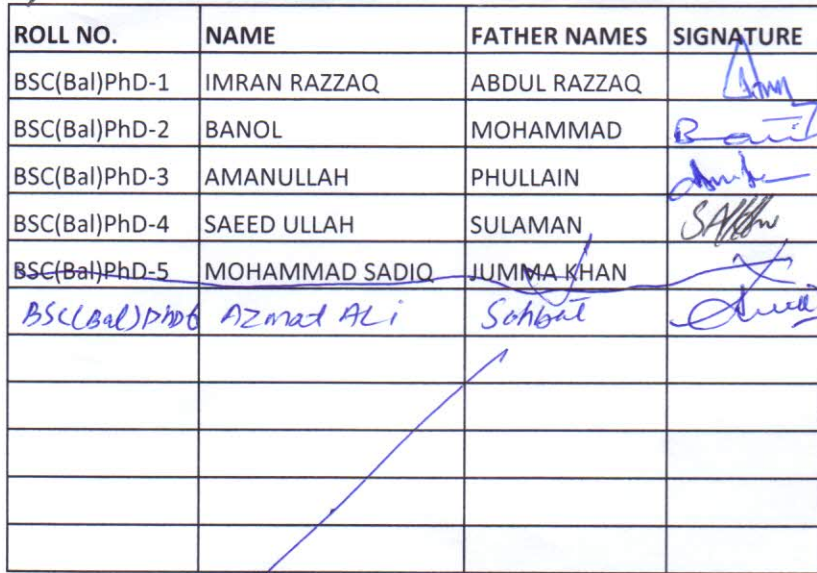 ROLL NO. NAME FATHER NAMES SIGNATURE
BSC(Bal)PhD-1 IMRAN RAZZAQ ABDUL RAZZAQ
BSC(Bal)PhD-2 BANOL MOHAMMAD
BSC(Bal)PhD-3 AMANULLAH PHULLAIN
BSC(Bal)PhD-4 SAEED ULLAH SULAMAN
BSC(Bal)PhD-5 MOHAMMAD SADIQ JUMMA KHAN
BSC(Bal)PhD6 AZmat ALi Sohbat